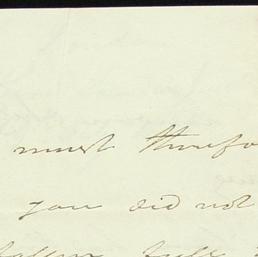 must therefo
you did not